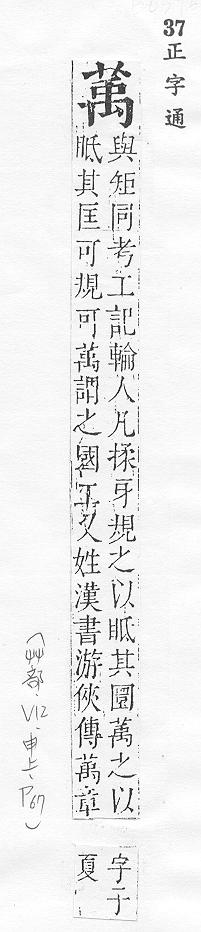 37
正字通
萭
與矩同考工記輪人凡揉牙規之以眡其圜萭之以
眡其匡可規可萭謂之國工又姓漢書游俠傳萭章
字子
夏
(艸部、V12、申上、P67)